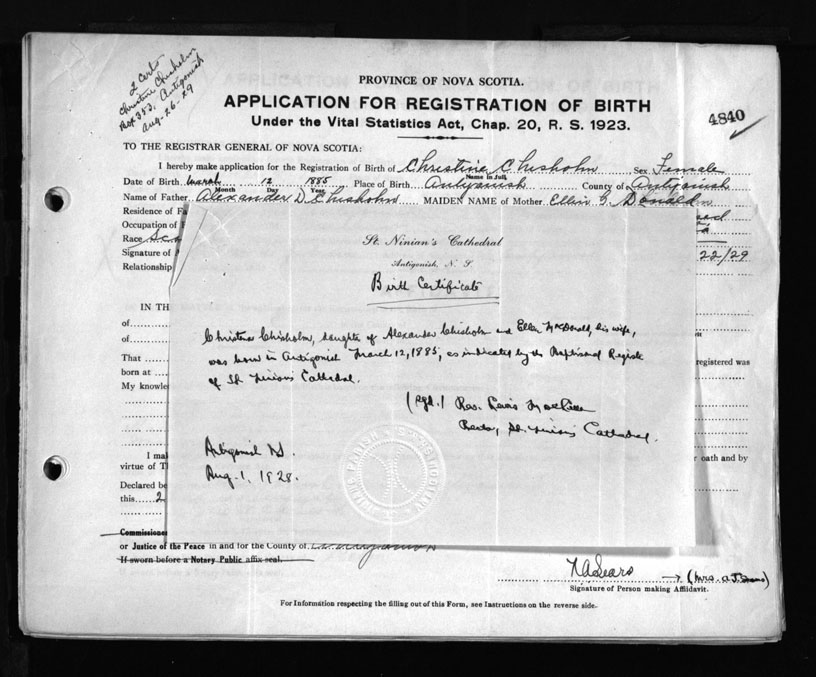 2 Certs
Christine Chisholm
Box 353, Antigonish
Aug-26-29
PROVINCE OF NOVA SCOTIA.
APPLICATION FOR REGISTRATION OF BIRTH
4840
Under the Vital Statistics Act, Chap. 20, R. S. 1923.
TO THE REGISTRAR GENERAL OF NOVA SCOTIA:
I hereby make application for the Registration of Birth of Christine Chisholm Sex Female
Name in full
Date of Birth March 12 1885 Place of Birth Antigonish County of Antigonish
Month Day Year
Name of Father Alexander D Chisholm MAIDEN NAME of Mother Ellen G. Donald
Residence of Fa
Occupation of
Race
Signature of 22/29
Relationship
St. Ninian's Cathedral
Antigonish, N. S.
Birth Certificate
Christina Chisholm, daughter of Alexander Chisholm and Ellen McDonald, his wife,
was born in Antigonish March 12, 1885, as indicated by the Baptismal Registe
of St. Ninian's Cathedral.
(Sgd.) Rev. Lewis
Rector, St. Ninian's Cathedral.
Antigonish N.S.
Aug-1, 1928.
IN TH
of
of
That registered was
born at
My knowle
I mal oath and by
virtue of T
Declared be
this 2
Commissioner
or Justice of the Peace in and for the County of
If sworn before a Notary Public affix seal.
(Mrs. A.J. Sears)
Signature of Person making Affidavit.
For Information respecting the filling out of this Form, see Instructions on the reverse side.